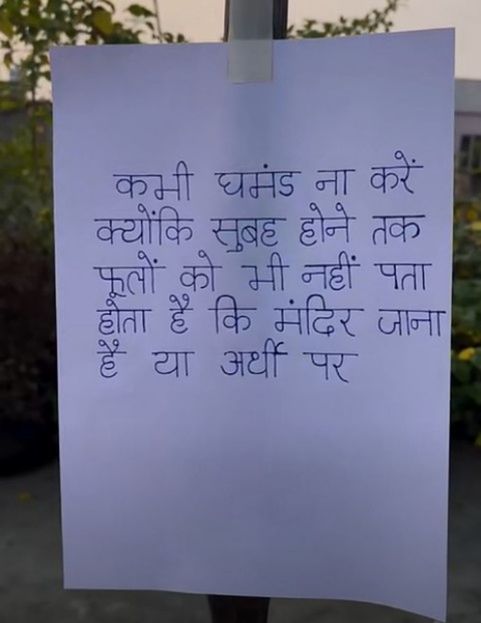 कभी घमंड ना करें
क्योंकि सुबह होने तक
फूलों को भी नहीं पता
होता है कि मंदिर जाना
है या अर्थी पर